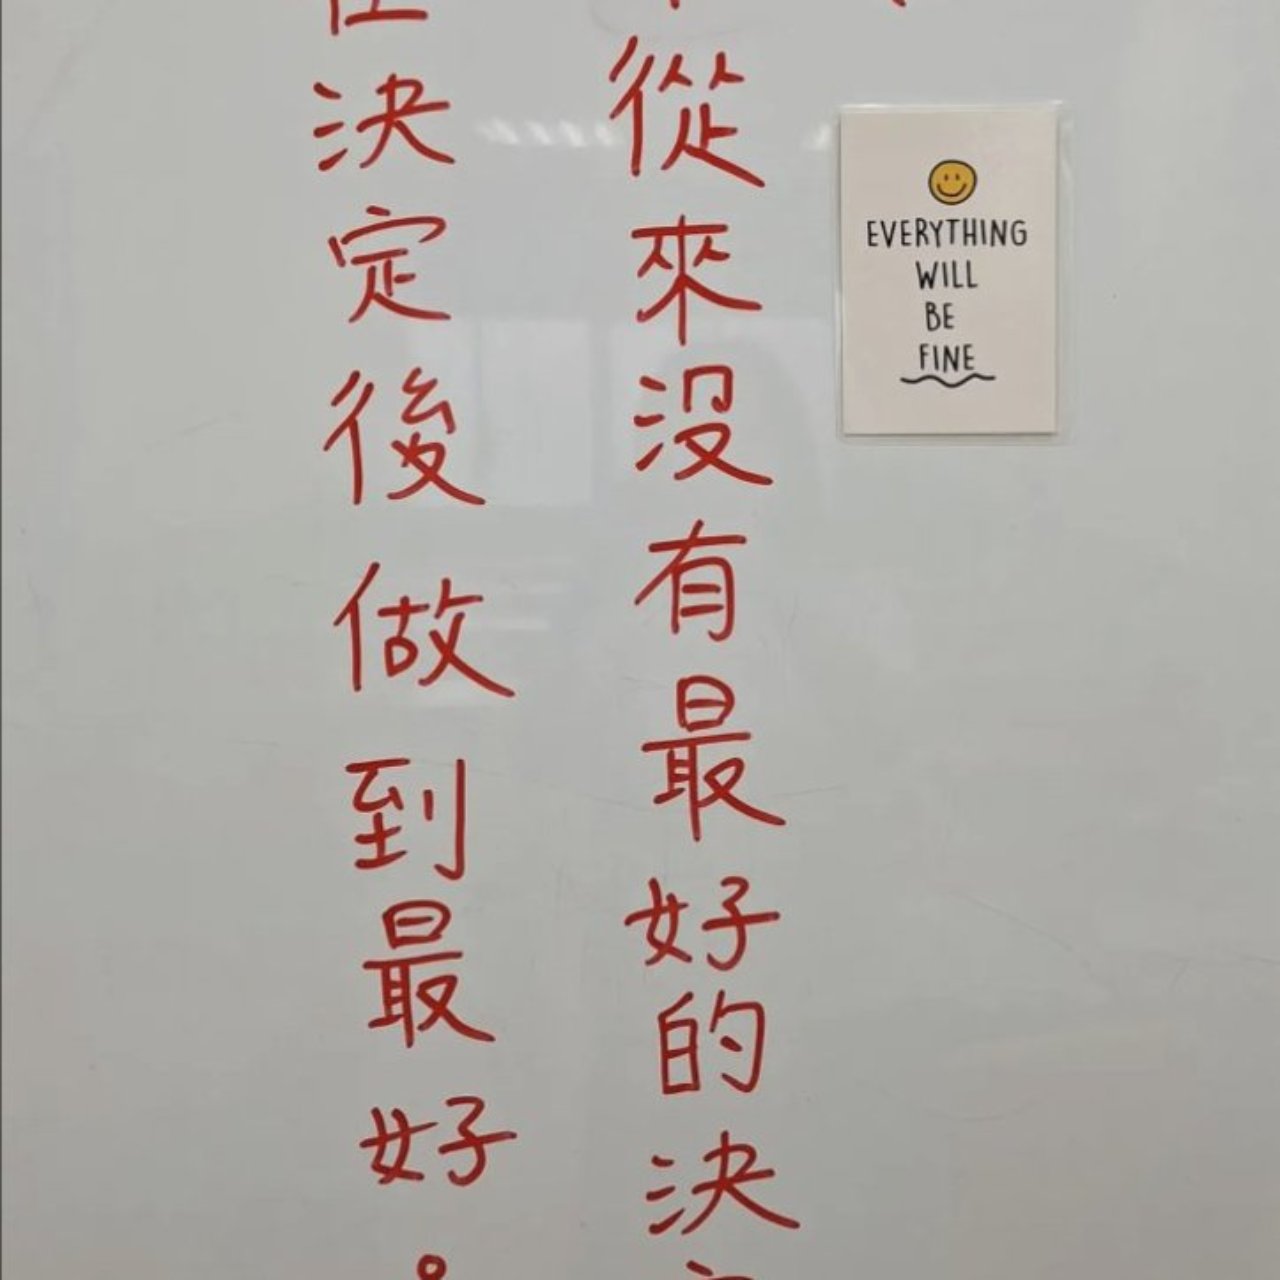 從來没有最好的決
決定後做到最好。
EVERYTHING
WILL
BE
FINE